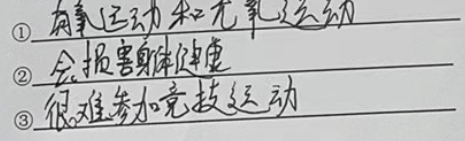 ① 有氧运动和无氧运动
② 会损害身体健康
③ 很难参加竞技运动